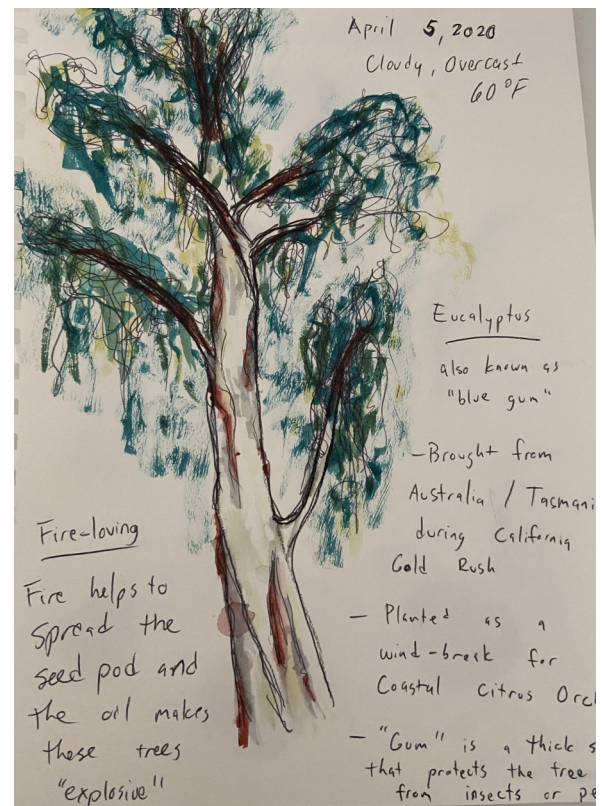 April 5, 2020
Cloudy, Overcast
60°F
Eucalyptus
also known as
"blue gum"
- Brought from
Australia / Tasmani
during California
Gold Rush
- Planted as a
wind-break for
Coastal Citrus Orc
- "Gum" is a thick s
that protects the tree
from insects or pe
Fire-loving
Fire helps to
spread the
seed pod and
the oil makes
these trees
"explosive"